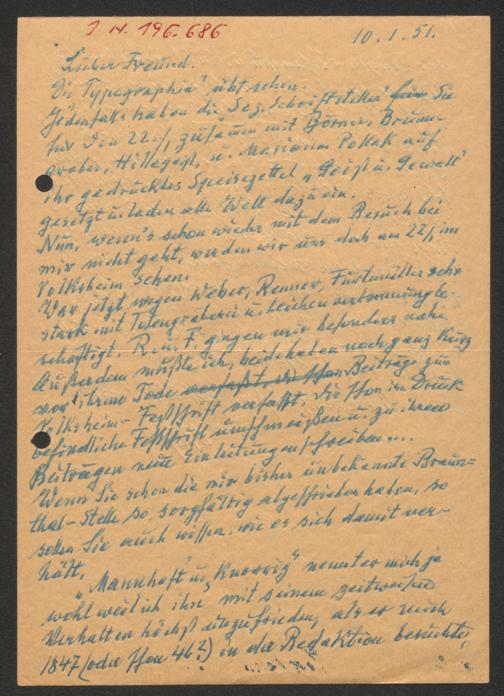 J. N. 196.686
10.1.51.
Lieber Freund.
Die "Typographia" übt schon.
Jedenfalls haben die "Soz. Schriftsteller" für Sie
für den 22./1. zusammen mit Dörner, Brunn-
graber, Hillegeist, u. Marianne Pollak auf
ihr gedrucktes Speisezettel "Geist u. Gewalt"
gesetzt u. laden alle Welt dazu ein.
Nun, wenn's schon wieder mit dem Besuch bei
mir nicht geht, werden wir uns doch am 22/1 im
Volksheim sehen.
War jetzt wegen Weber, Renner, Furtmüller sehr
stark mit Totengräberei u. Leichenverbrennung be-
schäftigt. R. u. F. gingen mir besonders nahe
Außerdem mußte ich, beide haben noch ganz kurz
vor ihrem Tode verfaßt, die schon Beiträge zur
Volksheim-Festschrift verfaßt. Die schon im Druck
befindliche Festschrift umschmeißen u. zu ihren
Beiträgen neue Einleitungen schreiben...
Wenn Sie schon die mir bisher unbekannte Braun-
thal-Stelle so sorgfältig abgeschrieben haben, so
sollen Sie auch wissen, wie es sich damit ver-
hält.
"Mannhaft" u. "Knorrig" nennt er mich ja
wohl weil ich ihn mit seinem zeitweisen
Verhalten höchst unzufrieden, als er mich
1847 (oder schon 46?) in der Redaktion besuchte,